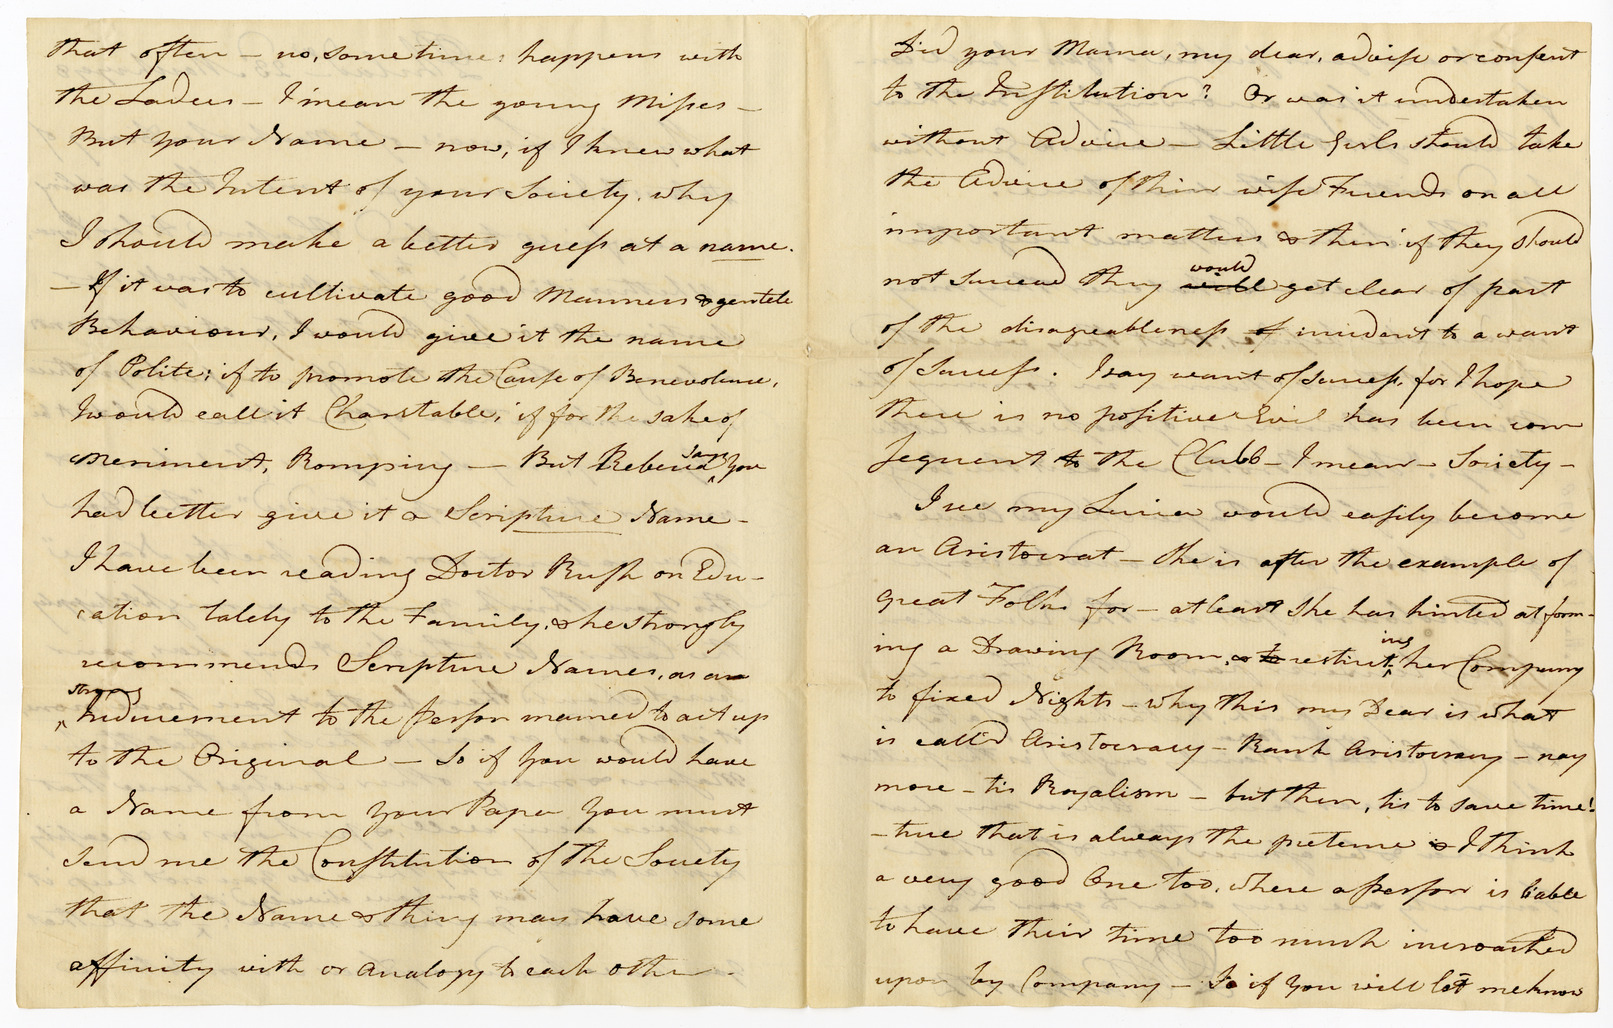 that often – no, sometimes happens with
the Ladies – I mean the young Misses –
But your Name – now, if I knew what
was the Intent of your Society, why
I should make a better guess at a name.
– If it was to cultivate good Manners & genteele
Behaviour, I would give it the name
of Polite; if to promote the Cause of Benevolence,
I would call it Charitable, if for the sake of
merriment, Romping – But Rebecca says you
had better give it a Scripture Name –
I have been reading Doctor Rush on Edu-
cation lately to the Family, & he strongly
recommends Scripture Names, as an
strong
Inducement to the person named to act up
to the Original – So if you would have
a Name from your Papa you must
send me the Constitution of the Society
that the Name & thing may have some
affinity with or analogy to each other –
Did your Mama, my dear, advise or consent
to the Institution? Or was it undertaken
without Advice – Little Girls should take
the Advice of their wise Friends on all
important matters & then if they should
would
not succeed they will get clear of part
of the disagreableness of incident to a want
of Success. I say want of success, for I hope
there is no positive Evil has been con
sequent to the Clubb – I mean – Society –
I see my would easily become
an Aristocrat – She is after the example of
great Folks for – at least She has hinted at form-
ing a Drawing Room, or to restricting her Company
to fixed Nights – why this my Dear is what
is call'd Aristocracy – Rank Aristocracy – nay
more – tis Royalism – but then, tis to save time!
– true that is always the pretence & I think
a very good One too, where a person is liable
to have their time too much incroached
upon by Company – So if you will let me know